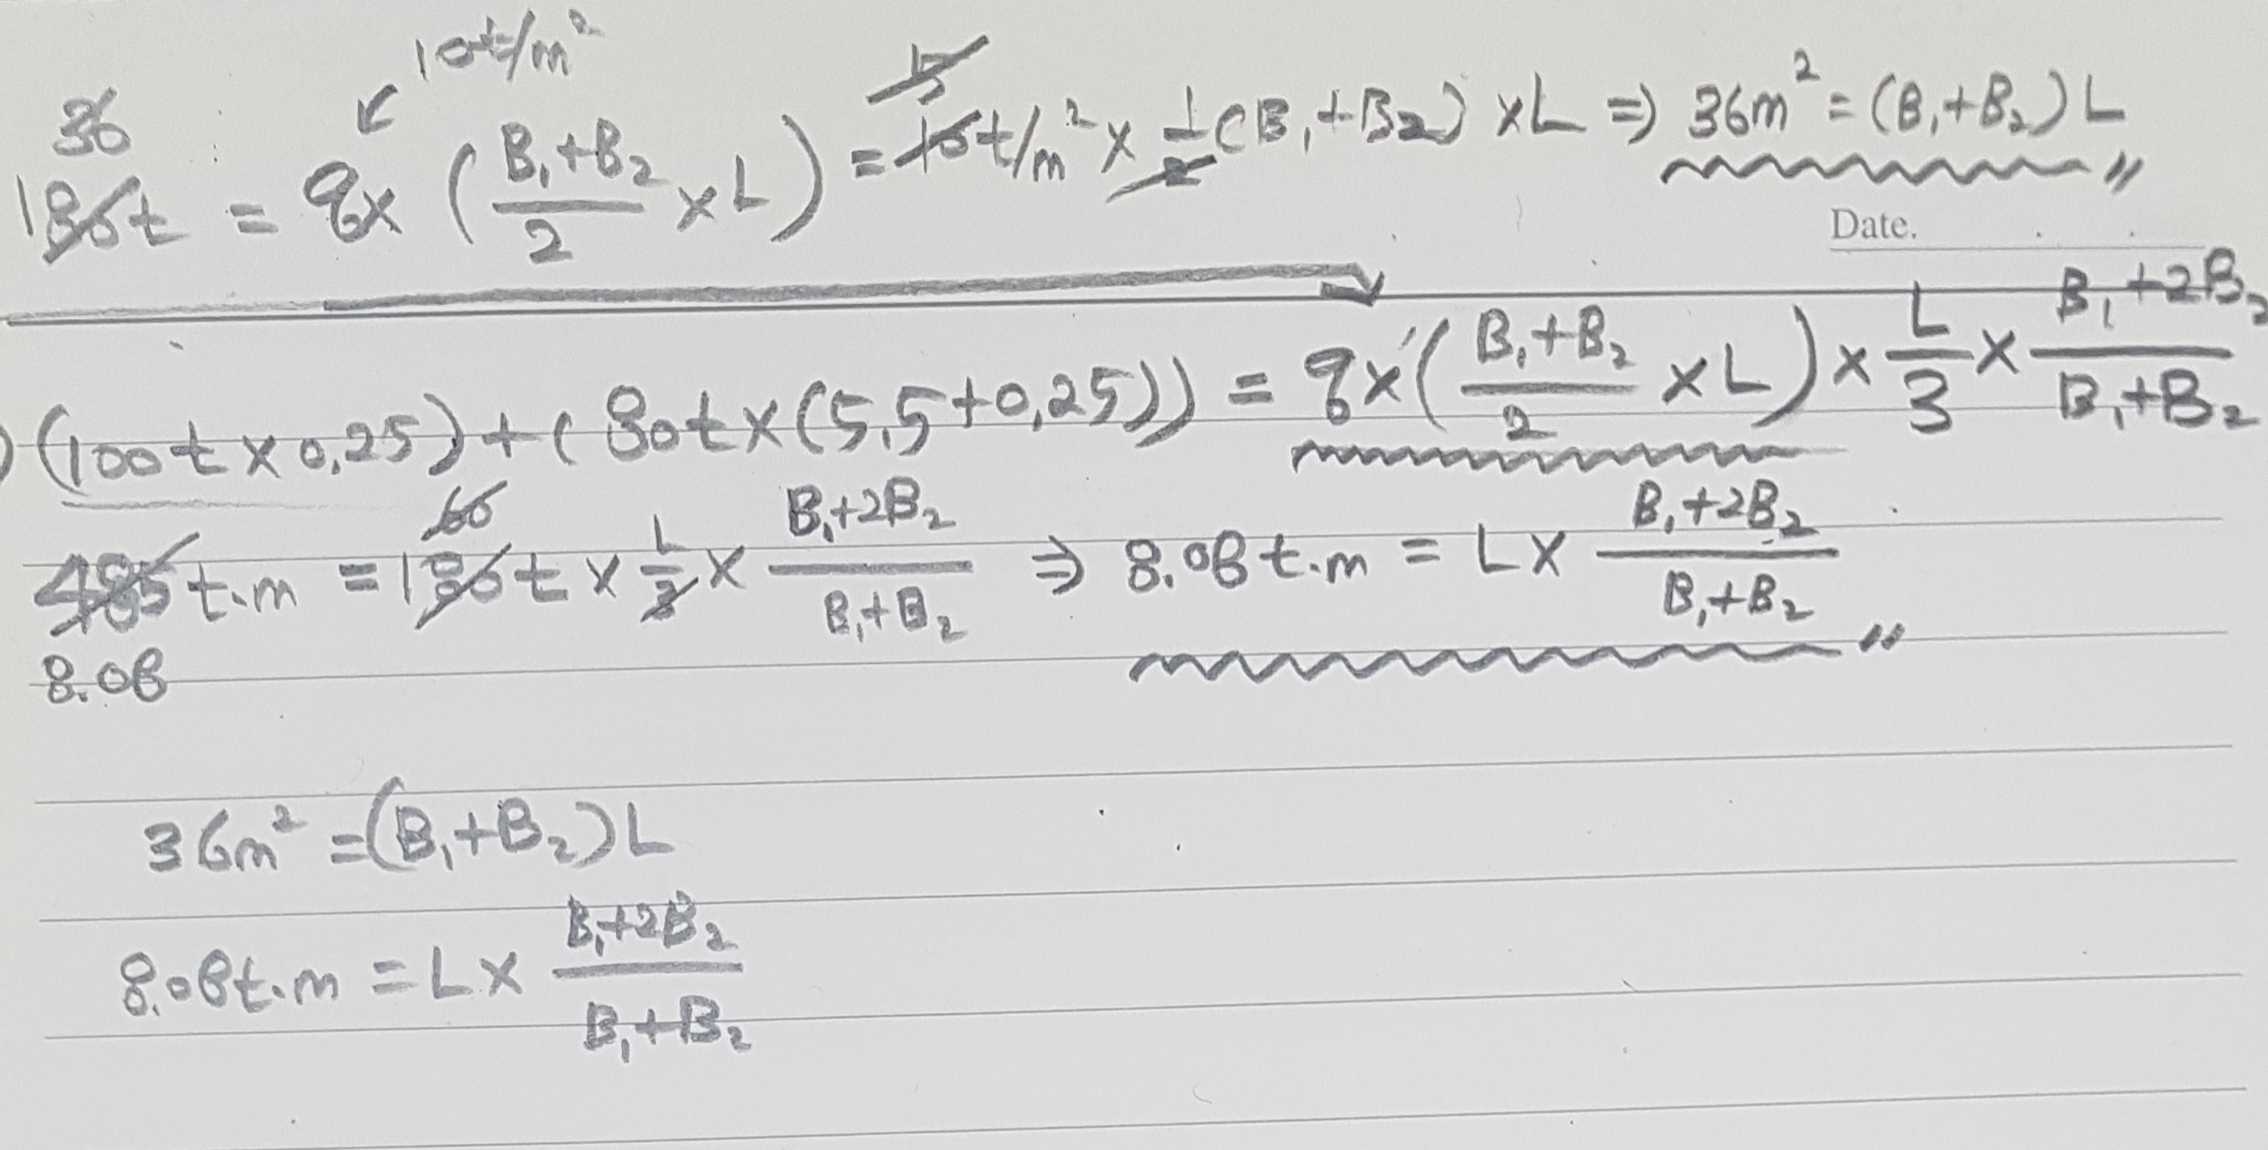 10t/m²
36 5
180t = q x ( B₁+B₂/2 x L ) = 10t/m² x 1/2 (B₁+B₂) x L ⇒ 36m² = (B₁+B₂) L
Date.
) (100t x 0,25) + ( 80t x (5,5+0,25)) = q x ( B₁+B₂/2 x L ) x L/3 x B₁+2B₂/B₁+B₂
60
485 t.m = 180t x L/3 x B₁+2B₂/B₁+B₂ ⇒ 8.08 t.m = L x B₁+2B₂/B₁+B₂
8.08
36m² = (B₁+B₂) L
8.08t.m = L x B₁+2B₂/B₁+B₂